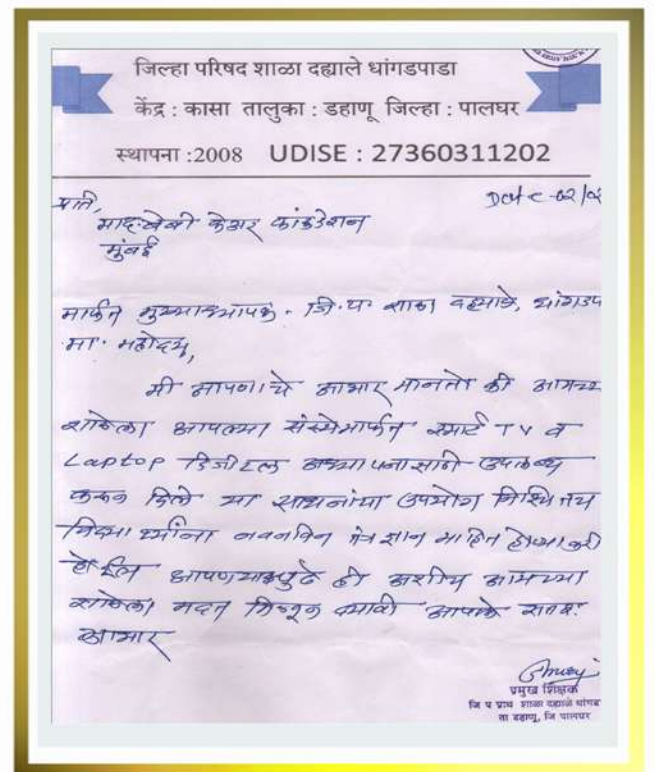 जिल्हा परिषद शाळा दह्याले धांगडपाडा
केंद्र : कासा तालुका : डहाणू जिल्हा : पालघर
स्थापना :2008 UDISE : 27360311202
प्रति,
Date - 02/0
मदर बेबी केअर फांऊडेशन
मुंबई
मार्फत मुख्याध्यापक - जि.प. शाळा दह्याळे, धांगडप
मा. महोदय,
मी आपणाचे आभार मानतो की आमच्य
शाळेला आपल्या संस्थेमार्फत स्मार्ट TV व
Laptop डिजीटल अध्यापनासाठी उपलब्ध
करून दिले या साधनांचा उपयोग निश्चितच
विद्यार्थ्यांना नवनविन तंत्रज्ञान माहित होण्याकरी
होईल आपणयापुढे ही अशीच आमच्या
शाळेला मदत मिळून द्यावी आपले
आभार
प्रमुख शिक्षक
जि प प्राथ शाळा दह्याळे धांगड
ता डहाणू, जि पालघर